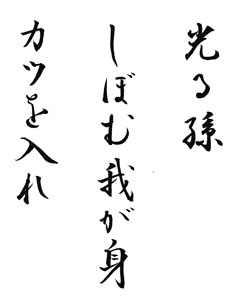 光る孫
しぼむ我が身
カツを入れ